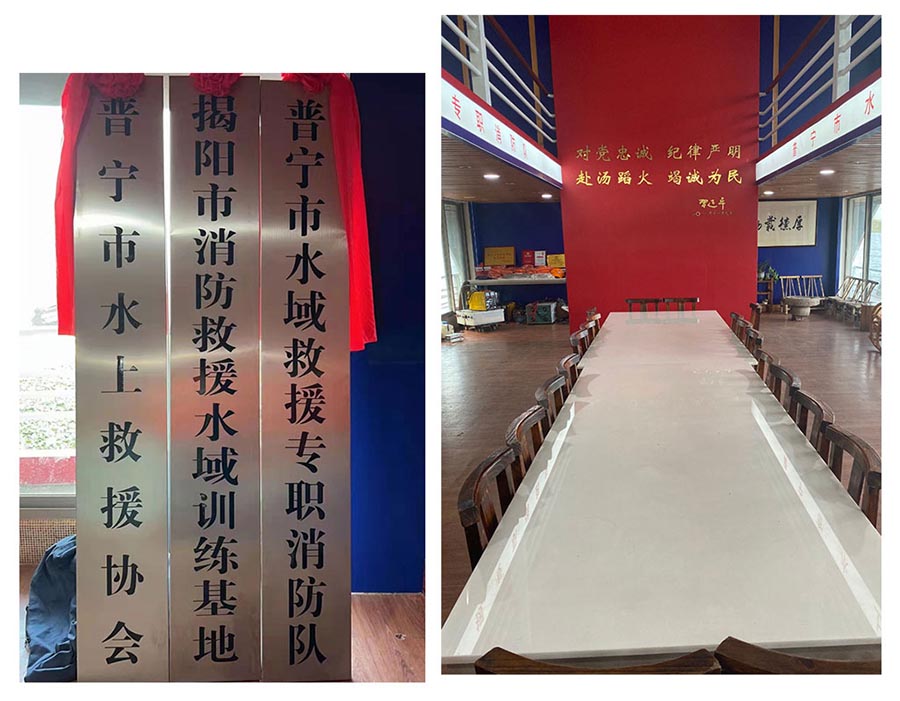 普宁市水上救援协会
揭阳市消防救援水域训练基地
普宁市水域救援专职消防队
专职消防队
普宁市水
对党忠诚 纪律严明
赴汤蹈火 竭诚为民
习近平